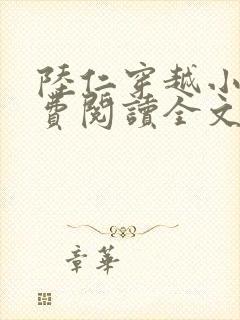 陸仁穿越小
費閱讀全文
章華